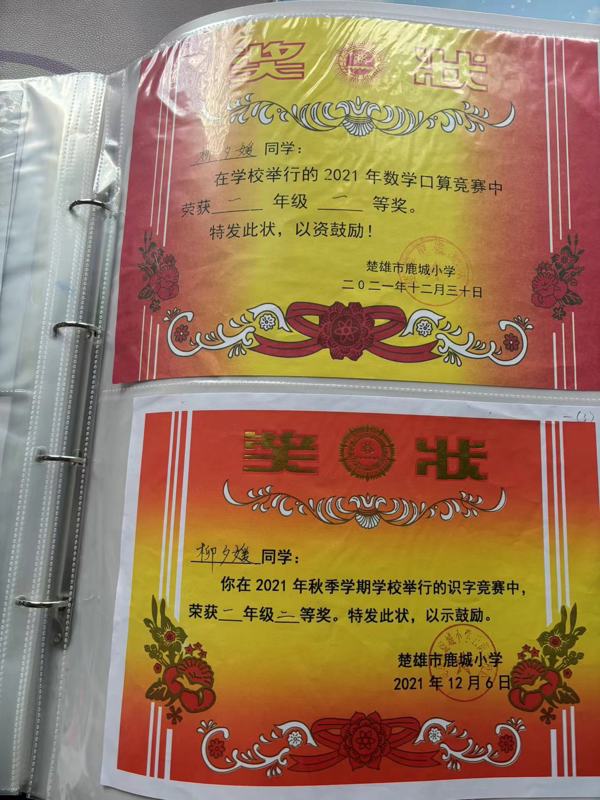 奖 状
柳夕媛 同学：
在学校举行的 2021 年数学口算竞赛中
荣获 二 年级 一 等奖。
特发此状，以资鼓励！
楚雄市鹿城小学
二0二一年十二月三十日
奖 状
柳夕媛 同学：
你在 2021 年秋季学期学校举行的识字竞赛中，
荣获二年级二等奖。特发此状，以示鼓励。
楚雄市鹿城小学
2021 年 12 月 6 日